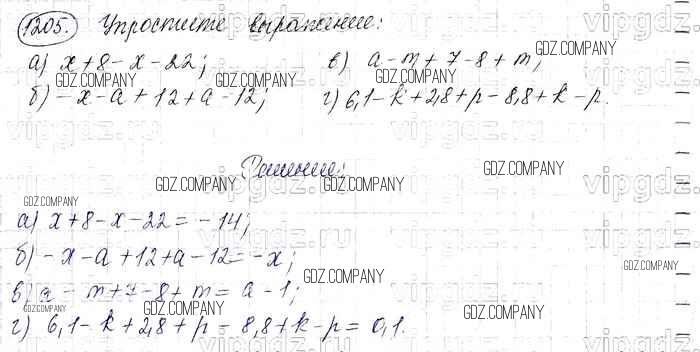 1205. Упростите выражение:
а) x+8-x-22; в) a-m+7-8+m;
б) -x-a+12+a-12; г) 6,1-k+2,8+p-8,8+k-p.
Решение:
а) x+8-x-22=-14;
б) -x-a+12+a-12=-x;
в) a-m+7-8+m=a-1;
г) 6,1-k+2,8+p-8,8+k-p=0,1.